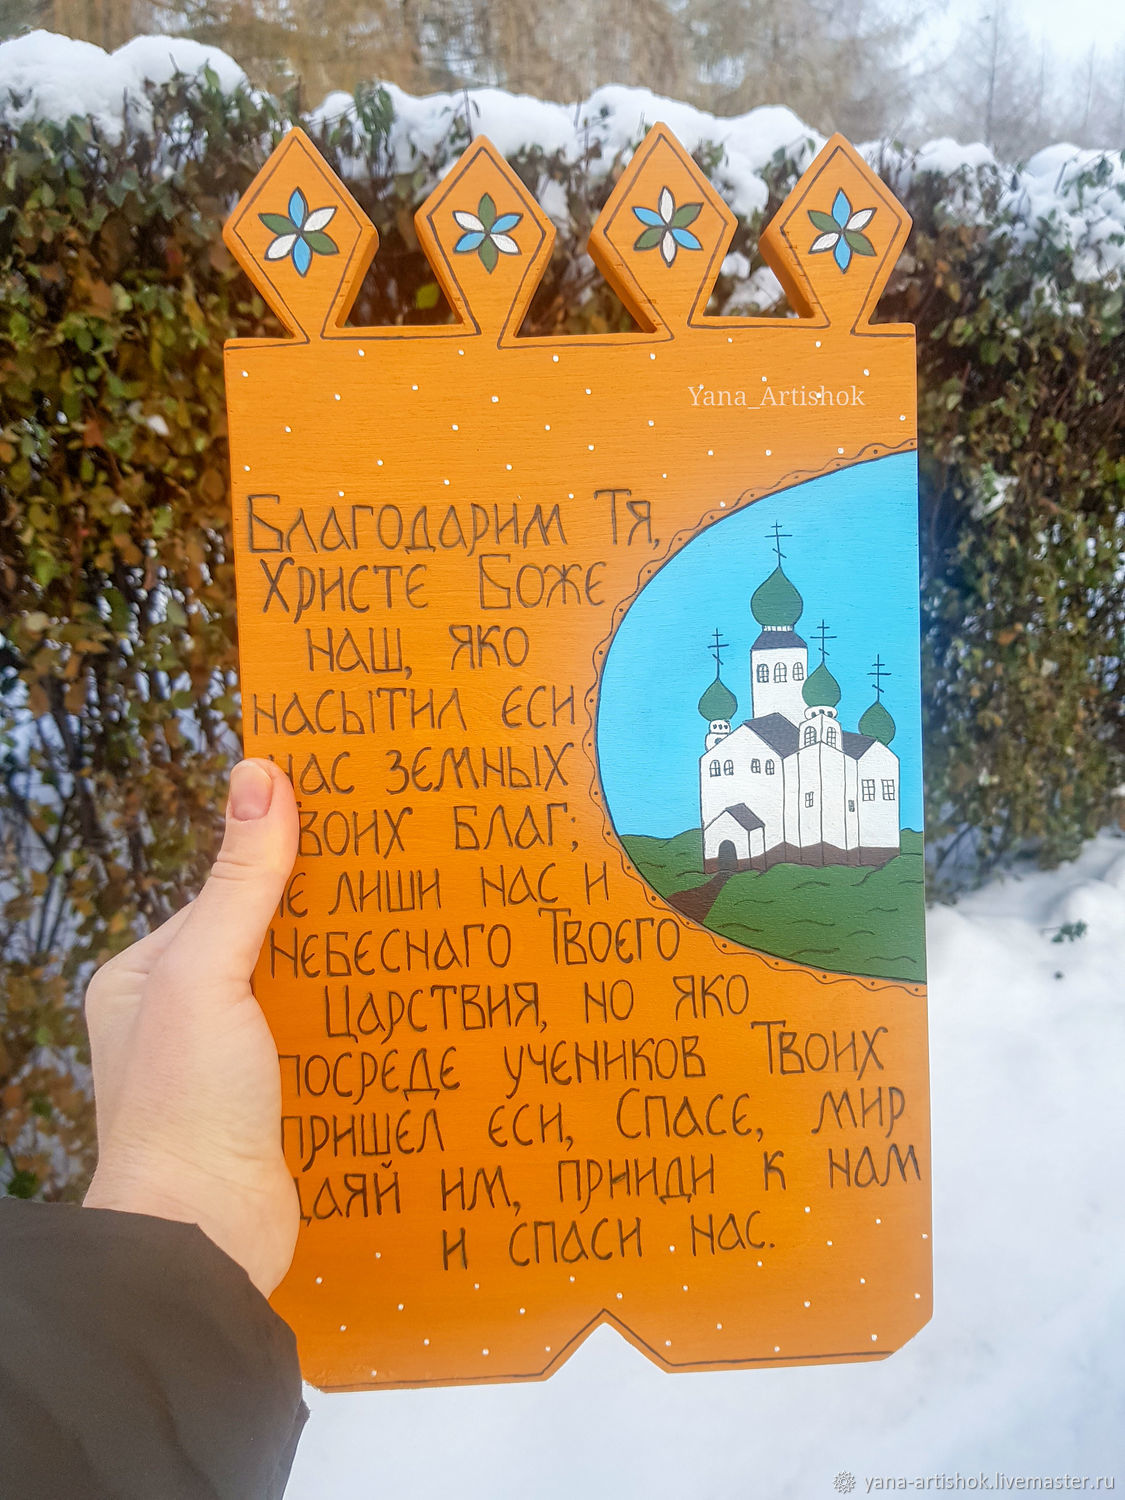 Yana_Artishok
Благодарим Тя,
Христе Боже
наш, яко
насытил еси
нас земных
воих благ;
не лиши нас и
Небеснаго Твоего
Царствия, но яко
посреде учеников Твоих
пришел еси, Спасе, мир
даяй им, прииди к нам
и спаси нас.
yana-artishok.livemaster.ru